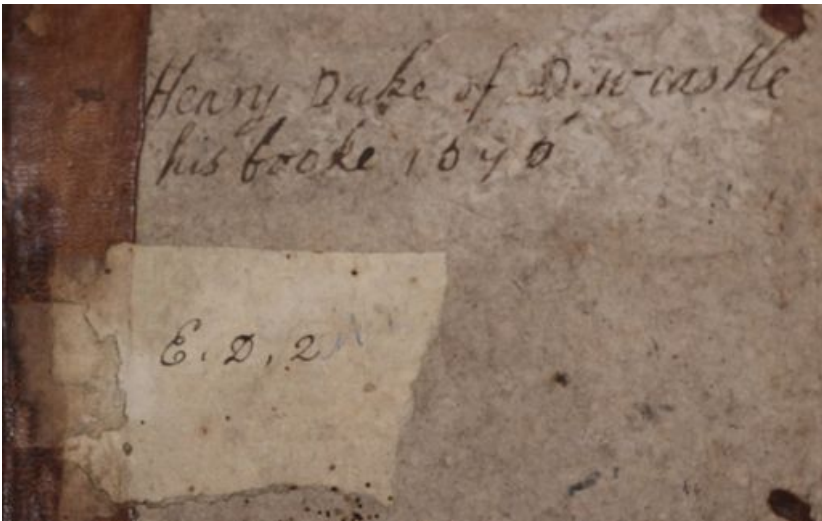 Henry Duke of Newcastle
his booke 1676
E. D, 2